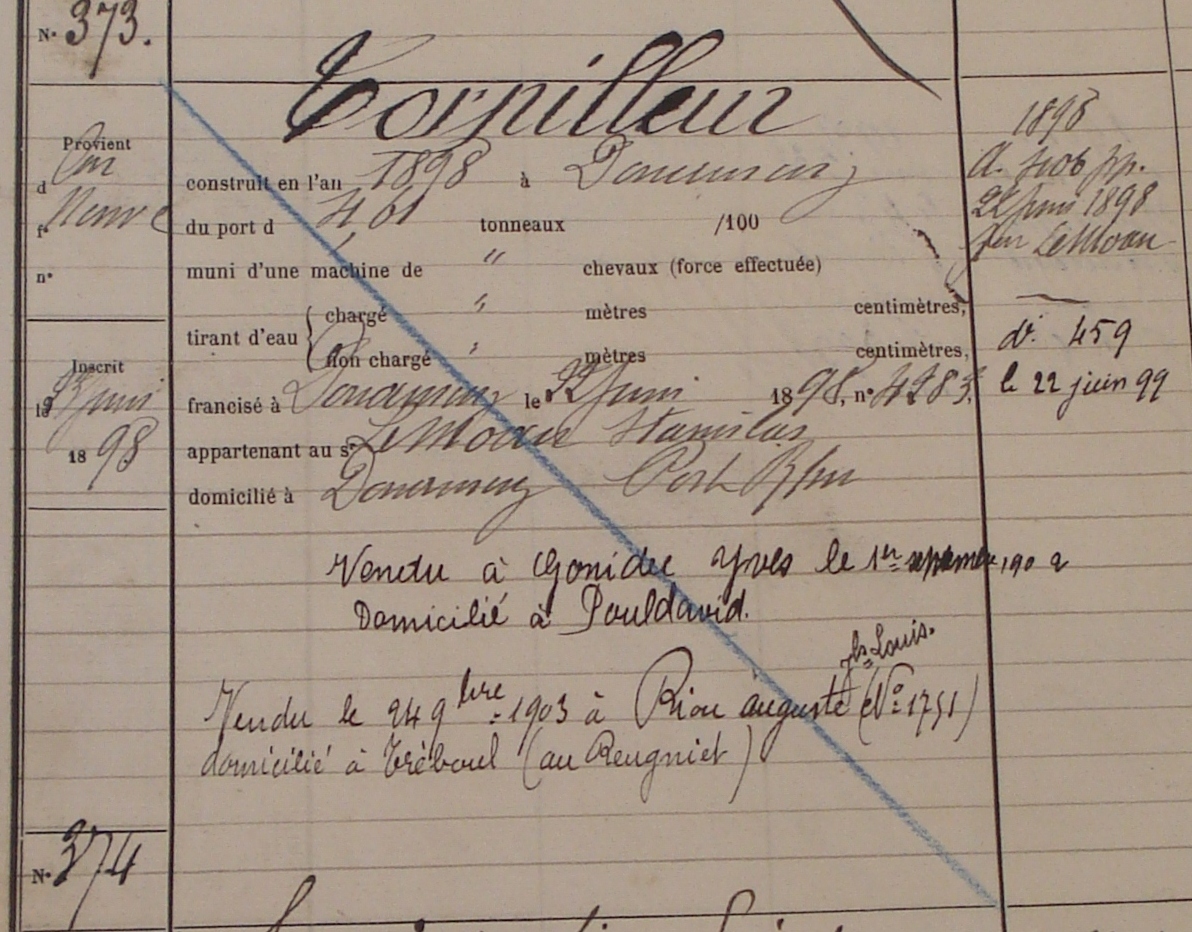 N° 373.
Torpilleur
Provient
d
construit en l'an 1898 à Douarnenez
f° Neuve
du port d 4,01 tonneaux /100
n°
muni d'une machine de " chevaux (force effectuée)
tirant d'eau { chargé " mètres centimètres,
non chargé " mètres centimètres,
Inscrit
le juin
1898
francisé à Douarnenez le juin 1898, n° 4283,
appartenant au s. Le Moan Stanislas
domicilié à Douarnenez Port Rhu
Vendu à Gonidec Yves le 1er septembre 1902
Domicilié à Pouldavid.
Vendu le 24 9bre 1903 à Riou auguste jh Louis. (N° 1751)
domicilié à Tréboul (au Reugniet)
1898
22 juin 1898
Le Moan
d. 459
le 22 juin 99
N° 374